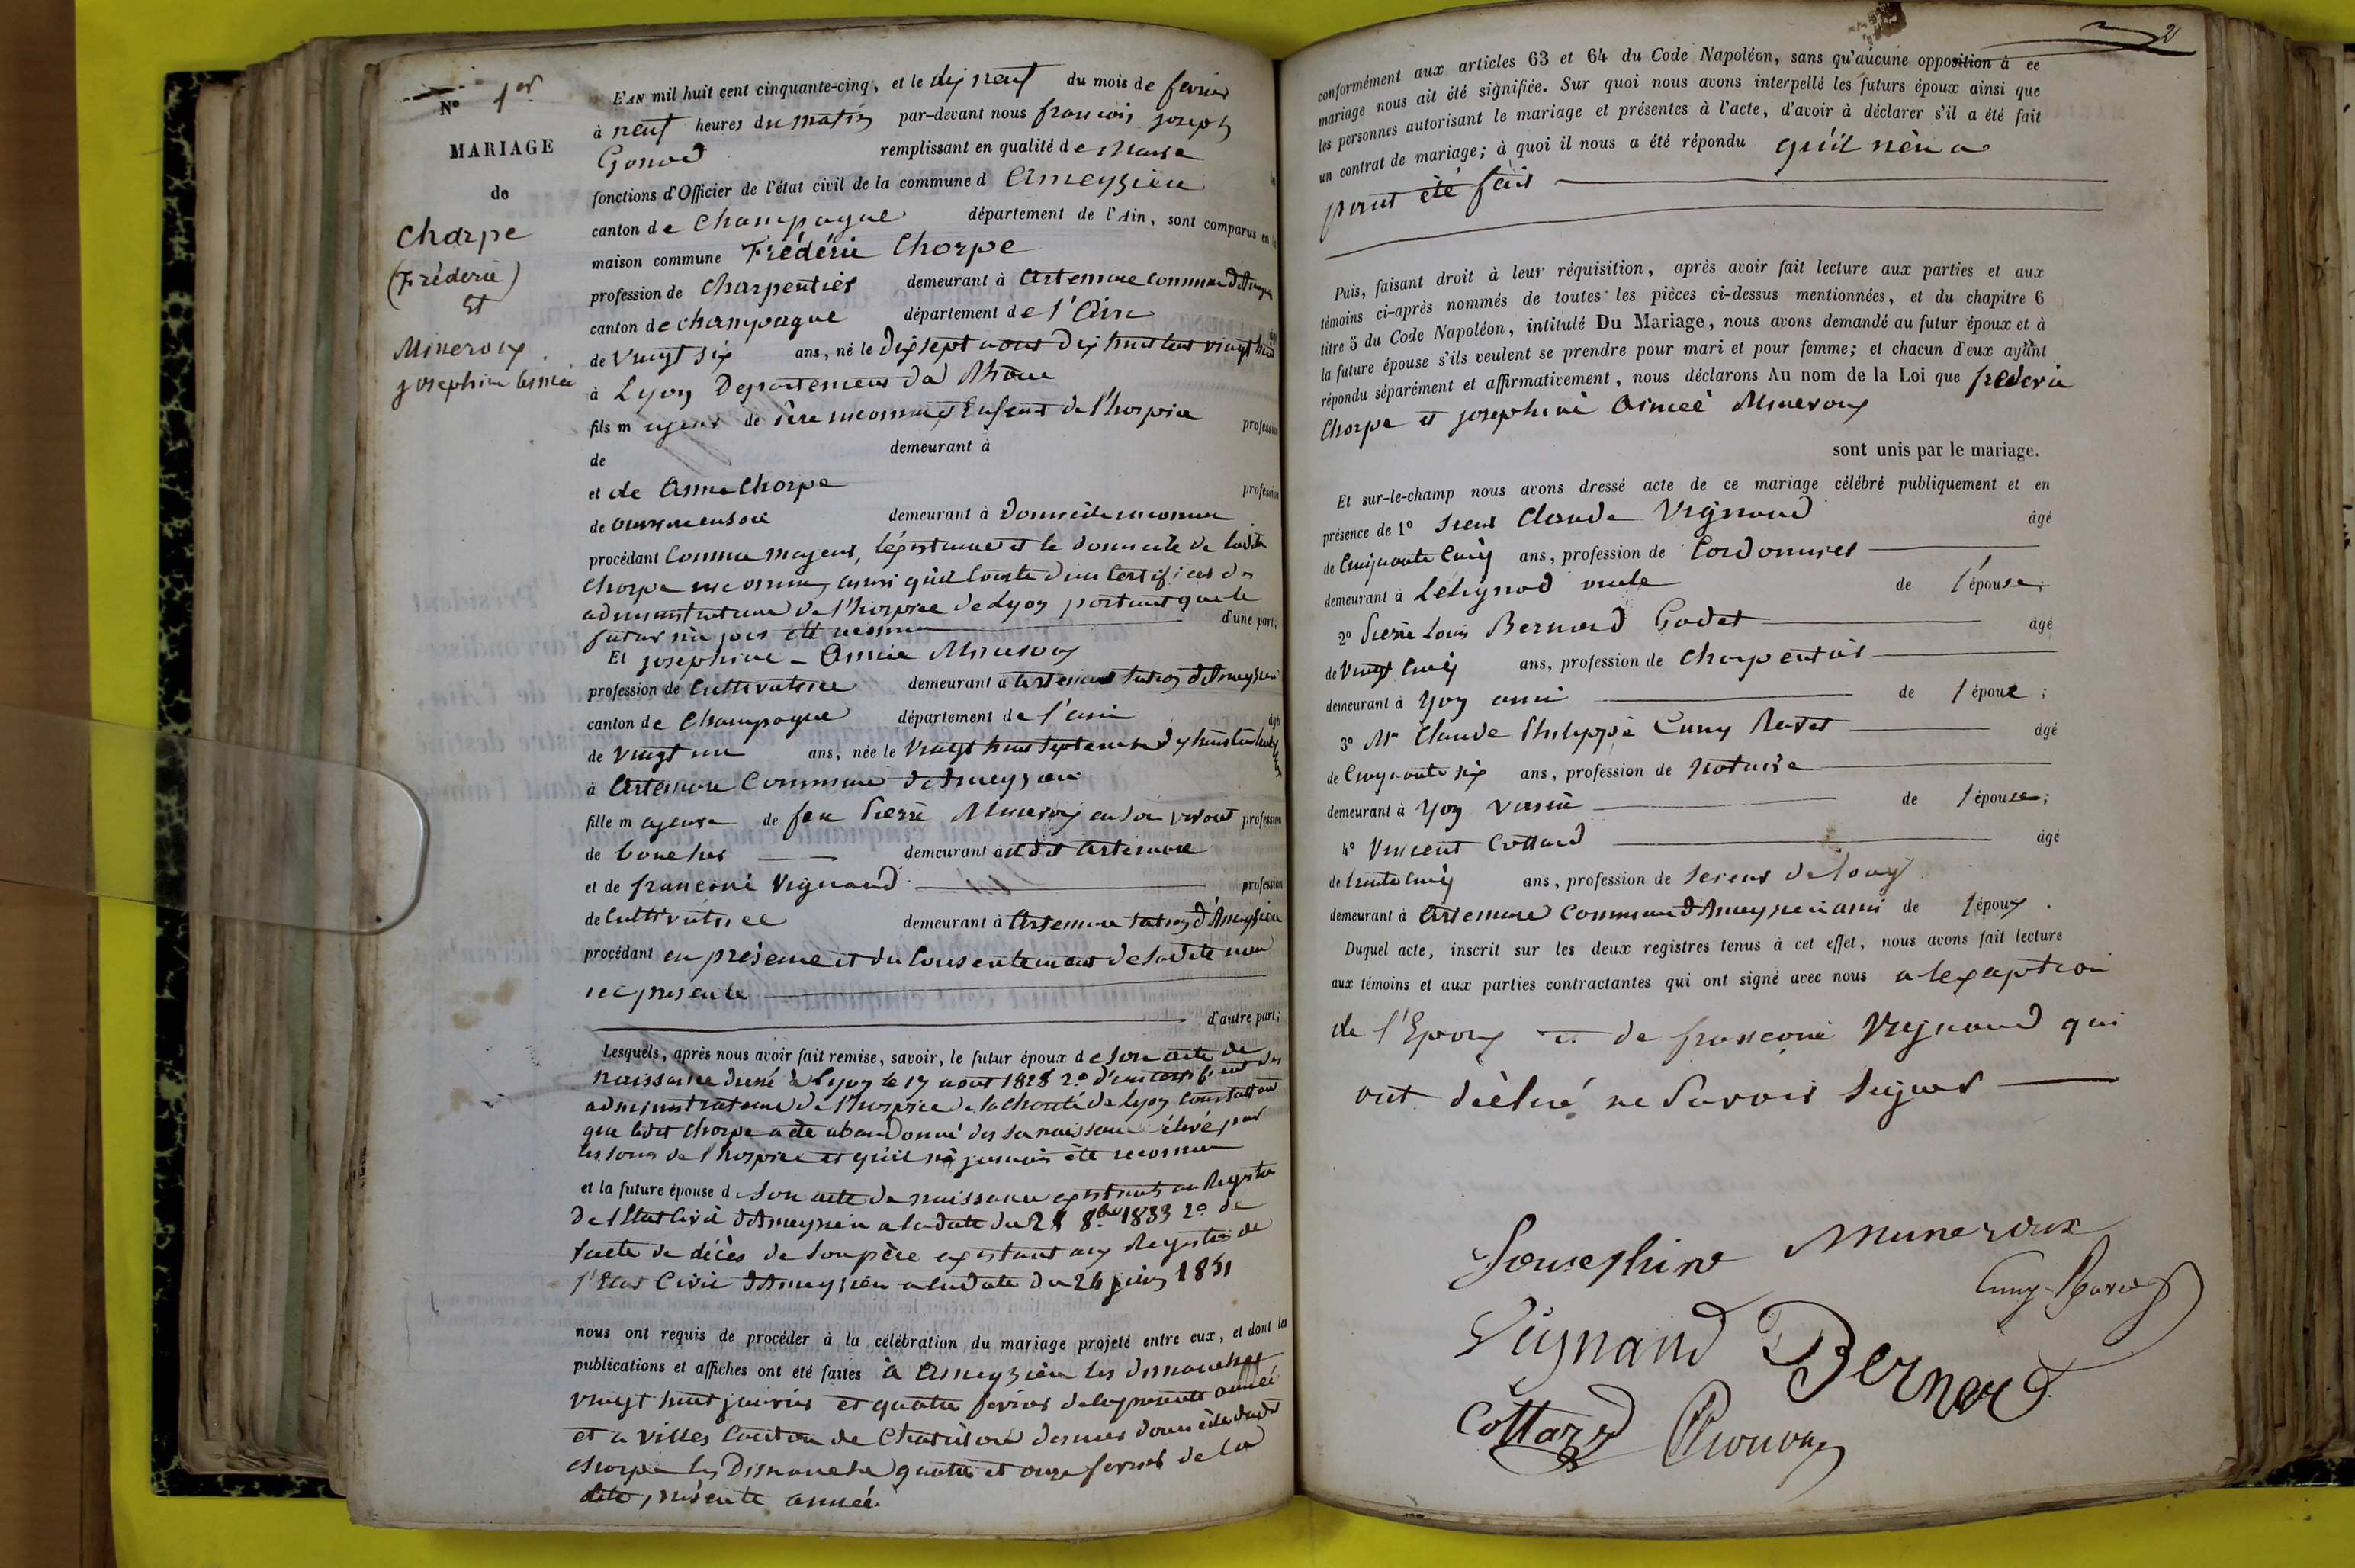 N° 1er
MARIAGE
de
Charpe
(Fréderic)
Et
Mineroux
Josephine Aimée
L'AN mil huit cent cinquante-cinq, et le dix neuf du mois de fevrier
à neuf heures du matin par-devant nous françois joseph
Gonod remplissant en qualité de Maire
fonctions d'Officier de l'état civil de la commune d Ameyzieu
canton de Champagne département de l'Ain, sont comparus en la
maison commune Frédéric Charpe
profession de Charpentier demeurant à Artemare commune d'Ameyzieu
canton de champagne département de l'Ain
de vingt six ans, né le Dix sept aout Dix huit cent vingt huit
à Lyon Departement du Rhône
fils m ajeur de père inconnu Enfant de l'hospice profession
de demeurant à
et de Anne Charpe profession
de ouvrière en soie demeurant à Domicile inconnu
procédant comme majeur, l'existance et le domicile de ladite
Charpe inconnus, ainsi qu'il conste d'un Certificat des
administrateurs de l'hospice de Lyon portant que le
futur n'a pas été reconnu d'une part;
Et josephine - Aimée Mineroux
profession de Cultivatrice demeurant à Artemare d'Ameyzieu
canton de Champagne département de l'ain âgée
de vingt un ans, née le vingt huit septembre dix huit cent trente trois
à Artemare Commune d'Ameyzieu
fille m ajeure de feu Pierre Mineroux en son vivant profession
de boucher demeurant audit Artemare
et de françoise Vignaud profession
de Cultivatrice demeurant à Artemare d'Ameyzieu
procédant en présence et du Consentement de sadite mère
ici présente
d'autre part;
Lesquels, après nous avoir fait remise, savoir, le futur époux de son acte de
naissance dressé à Lyon le 17 aout 1828 2° d'un certificat des
administrateurs de l'hospice de la charité de Lyon constatant
que ledit Charpe a été abandonné dès sa naissance élevé par
les soins de l'hospice et qu'il n'a jamais été reconnu
et la future épouse d son acte de naissance existant au Registre
De l'Etat Civil d'Ameyzieu a la date du 28 8bre 1833 2° de
l'acte de décès de son père existant aux Registres de
l'Etat Civil d'Ameyzieu a la date du 24 juin 1851
nous ont requis de procéder à la célébration du mariage projeté entre eux, et dont les
publications et affiches ont été faites à Ameyzieu les dimanches
vingt huit janvier et quatre fevrier de la presente année
et a Villes Canton de Chatillon dernier domicile dudit
Charpe les Dimanches quatre et onze fevrier de la
dite présente année
2
conformément aux articles 63 et 64 du Code Napoléon, sans qu'aucune opposition à ce
mariage nous ait été signifiée. Sur quoi nous avons interpellé les futurs époux ainsi que
les personnes autorisant le mariage et présentes à l'acte, d'avoir à déclarer s'il a été fait
un contrat de mariage; à quoi il nous a été répondu qu'il n'en a
point été fait
Puis, faisant droit à leur réquisition, après avoir fait lecture aux parties et aux
témoins ci-après nommés de toutes les pièces ci-dessus mentionnées, et du chapitre 6
titre 5 du Code Napoléon, intitulé Du Mariage, nous avons demandé au futur époux et à
la future épouse s'ils veulent se prendre pour mari et pour femme; et chacun d'eux ayant
répondu séparément et affirmativement, nous déclarons Au nom de la Loi que frederic
Charpe et josephine Aimeé Mineroux
sont unis par le mariage.
Et sur-le-champ nous avons dressé acte de ce mariage célébré publiquement et en
présence de 1° Sieur Claude Vignaud âgé
de Cinquante Cinq ans, profession de Cordonnier
demeurant à oncle de l'épouse;
2° Pierre Louis Bernard Godet âgé
de Vingt Cinq ans, profession de Charpentier
demeurant à Yon ami de l'époux;
3° Mr Claude Philippe Cuny Ravet âgé
de Cinquante six ans, profession de Notaire
demeurant à Yon voisin de l'épouse;
4° Vincent Cottard âgé
de trente Cinq ans, profession de Scieur de long
demeurant à Artemare Commune d'Ameyzieu ami de l'époux.
Duquel acte, inscrit sur les deux registres tenus à cet effet, nous avons fait lecture
aux témoins et aux parties contractantes qui ont signé avec nous a lexaption
de l'Epoux et de françoise Vignaud qui
ont déclaré ne Savoir Signer
Jousephine Muneroux
Cuny-Ravet
Vignaud Bernard
Cottard